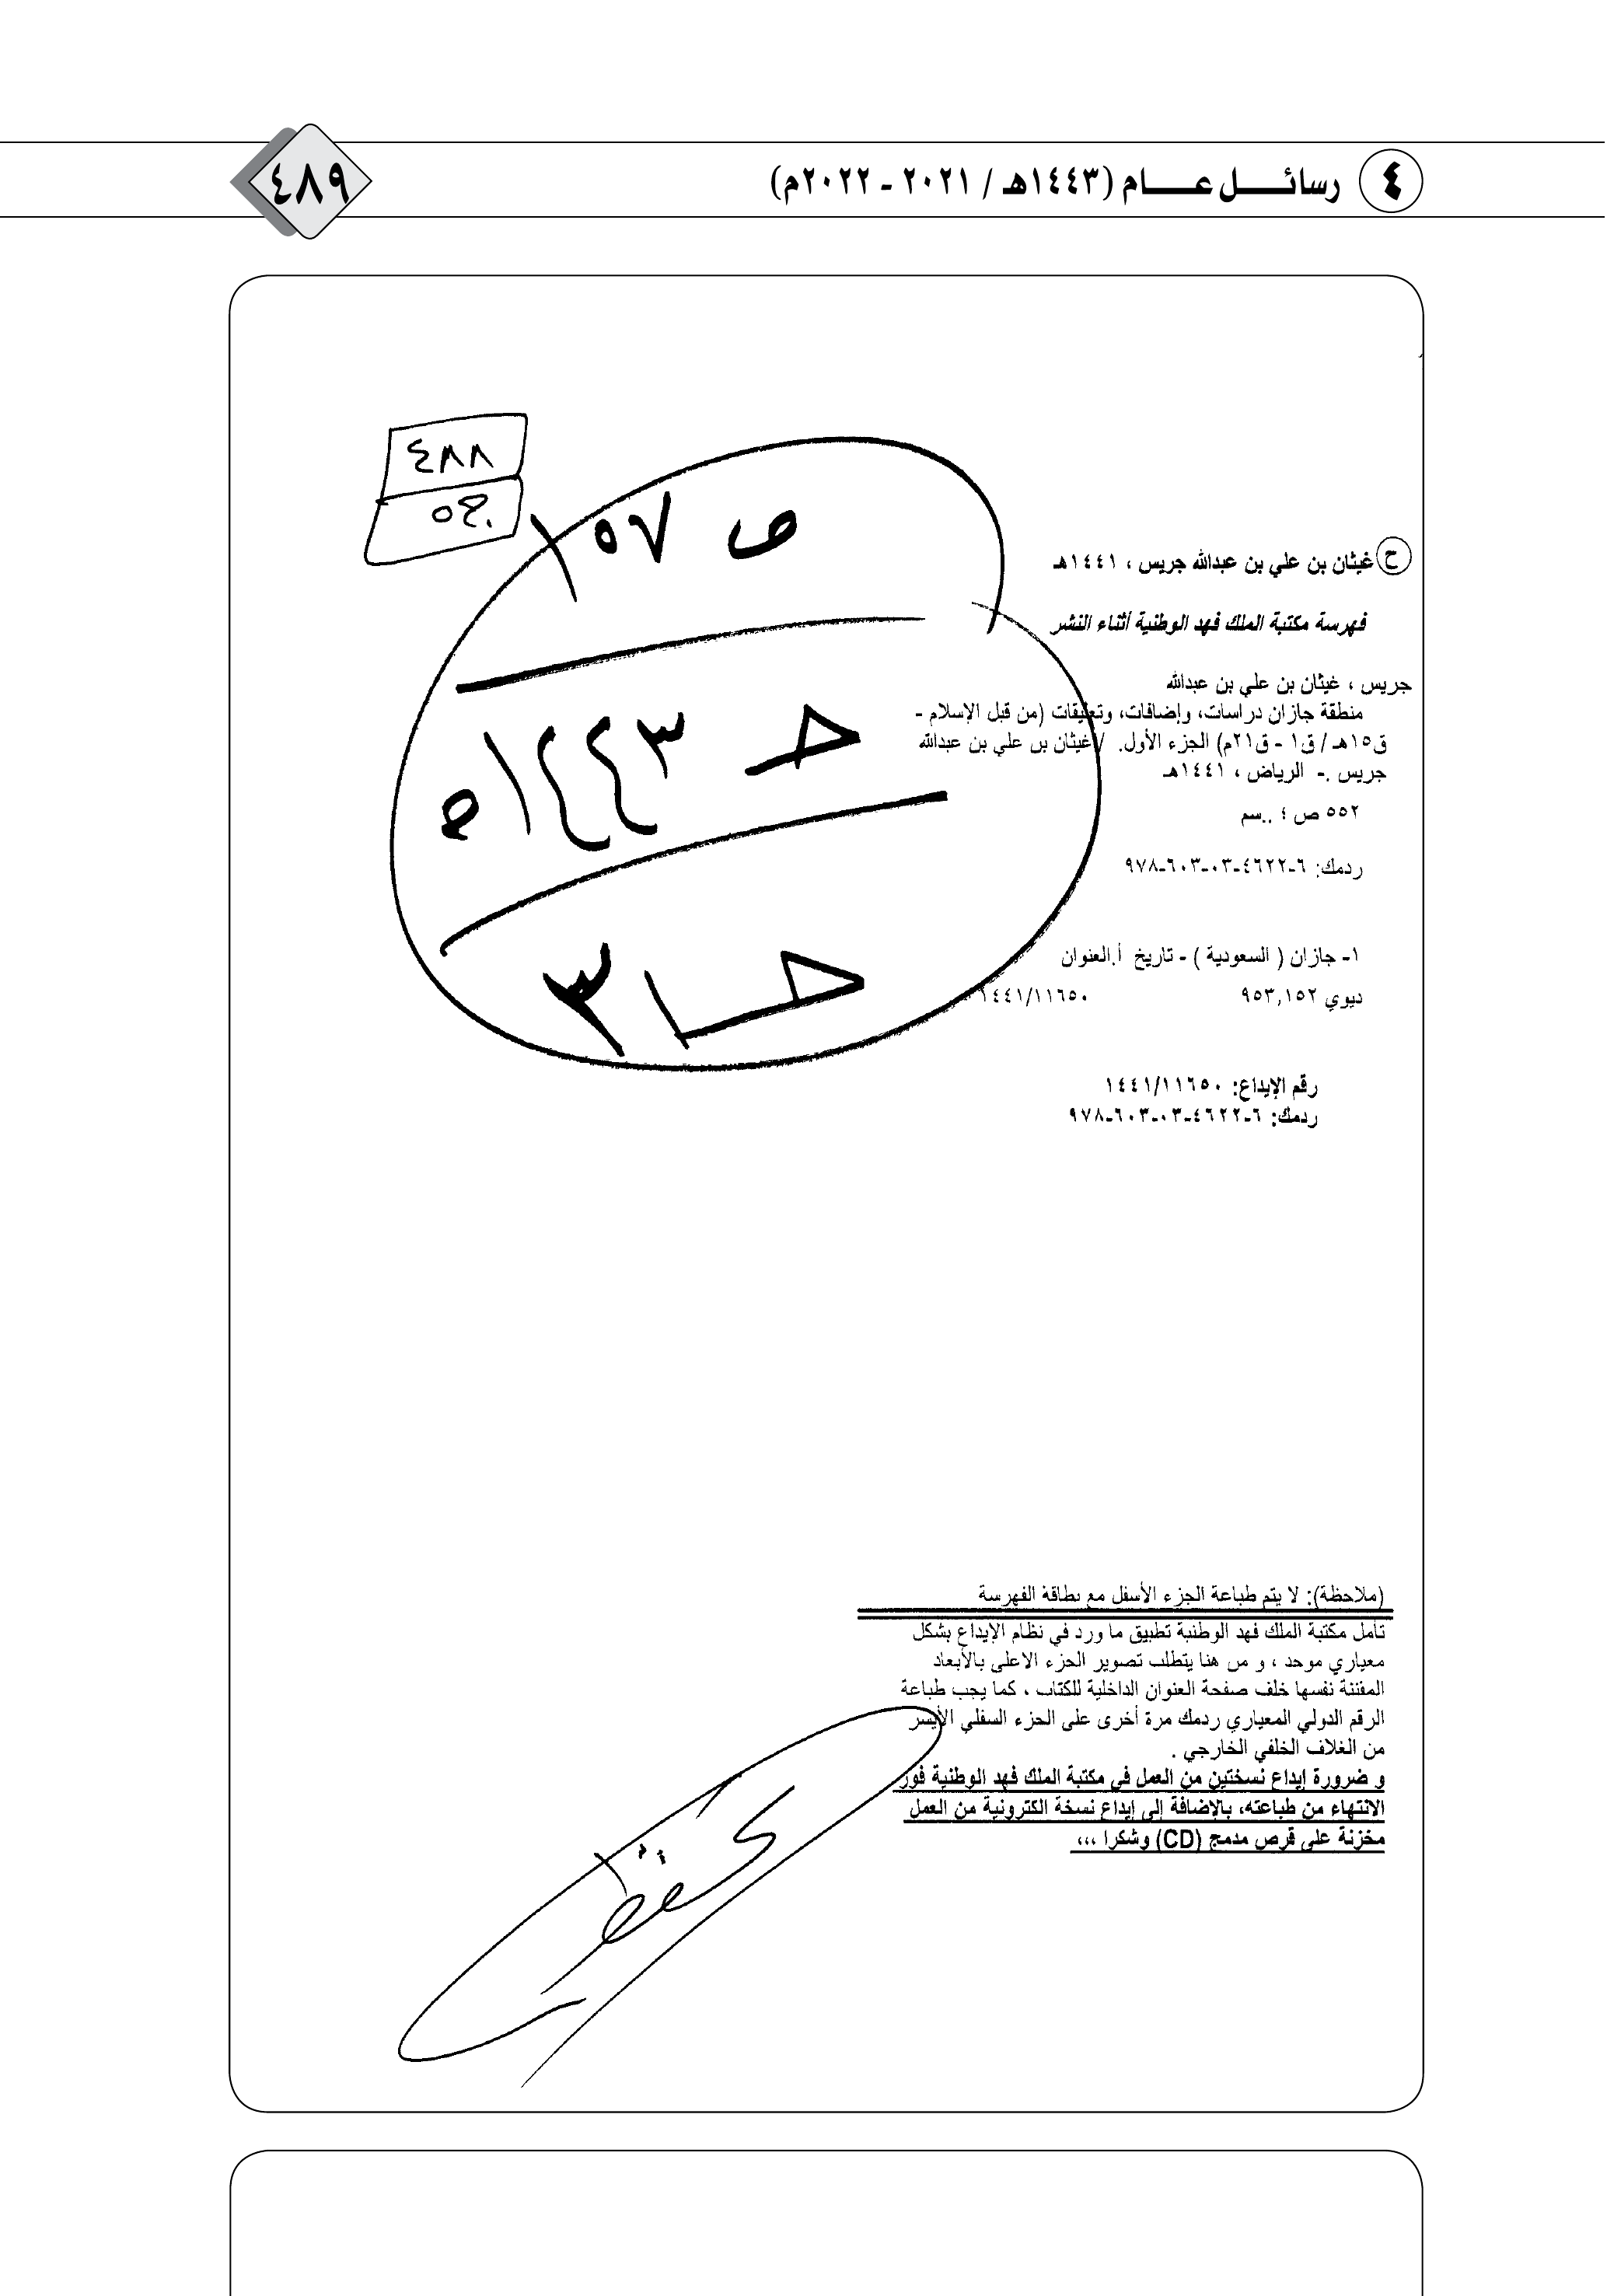 ٤ رسائل عام (١٤٤٣هـ / ٢٠٢١ - ٢٠٢٢م)
٤٨٩
٤٨٨
ص ١٥٧
١٤٤٣ه
ح غيثان بن علي بن عبدالله جريس ، ١٤٤١هـ
فهرسة مكتبة الملك فهد الوطنية أثناء النشر
جريس ، غيثان بن علي بن عبدالله
منطقة جازان دراسات، وإضافات، وتعليقات (من قبل الإسلام -
ق١٥هـ / ق١ - ق٢١م) الجزء الأول. / غيثان بن علي بن عبدالله
جريس .- الرياض ، ١٤٤١هـ
٥٥٢ ص ؛ ..سم
ردمك: ٦-٤٦٢٢-٠٣-٦٠٣-٩٧٨
١- جازان ( السعودية ) - تاريخ أ.العنوان
ديوي ٩٥٣,١٥٢ ١٤٤١/١١٦٥٠
رقم الإيداع: ١٤٤١/١١٦٥٠
ردمك: ٦-٤٦٢٢-٠٣-٦٠٣-٩٧٨
(ملاحظة): لا يتم طباعة الجزء الأسفل مع بطاقة الفهرسة
تأمل مكتبة الملك فهد الوطنية تطبيق ما ورد في نظام الإيداع بشكل
معياري موحد ، و من هنا يتطلب تصوير الجزء الاعلى بالأبعاد
المقننة نفسها خلف صفحة العنوان الداخلية للكتاب ، كما يجب طباعة
الرقم الدولي المعياري ردمك مرة أخرى على الجزء السفلي الأيسر
من الغلاف الخلفي الخارجي .
و ضرورة إيداع نسختين من العمل في مكتبة الملك فهد الوطنية فور
الانتهاء من طباعته، بالإضافة إلى إيداع نسخة الكترونية من العمل
مخزنة على قرص مدمج (CD) وشكرا ،،،